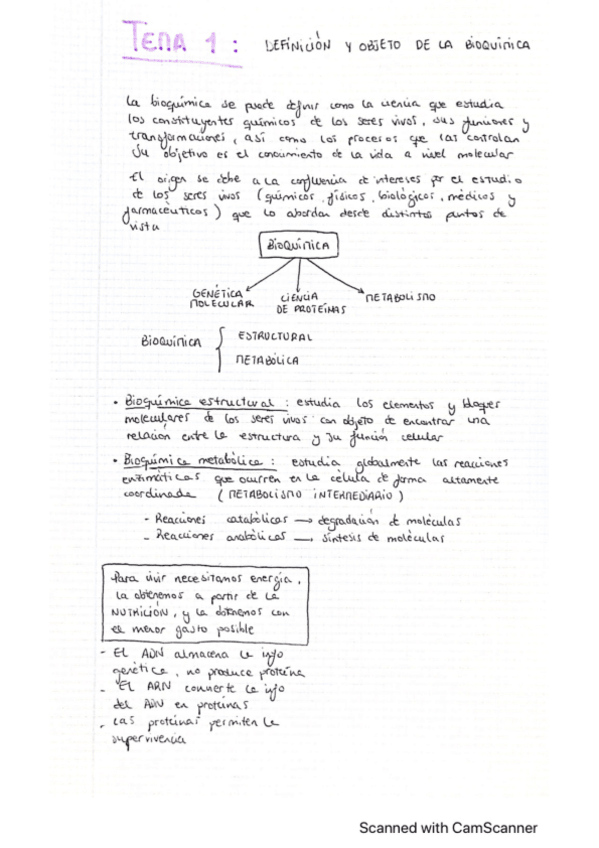 TEMA 1: DEFINICIÓN Y OBJETO DE LA BIOQUÍMICA
La bioquímica se puede definir como la ciencia que estudia
los constituyentes químicos de los seres vivos, sus funciones y
transformaciones, así como los procesos que las controlan
Su objetivo es el conocimiento de la vida a nivel molecular
El origen se debe a la confluencia de intereses por el estudio
de los seres vivos (químicos, físicos, biológicos, médicos y
farmacéuticos) que lo abordan desde distintos puntos de
vista
BIOQUÍMICA
GENÉTICA MOLECULAR
CIENCIA DE PROTEÍNAS
METABOLISMO
BIOQUÍMICA { ESTRUCTURAL
METABÓLICA
• Bioquímica estructural : estudia los elementos y bloques
moleculares de los seres vivos con objeto de encontrar una
relación entre la estructura y su función celular
• Bioquímica metabólica : estudia globalmente las reacciones
enzimáticas que ocurren en la célula de forma altamente
coordinada (METABOLISMO INTERMEDIARIO)
- Reacciones catabólicas → degradación de moléculas
- Reacciones anabólicas → síntesis de moléculas
Para vivir necesitamos energía,
la obtenemos a partir de la
NUTRICIÓN, y la obtenemos con
el menor gasto posible
- El ADN almacena la info
genética, no produce proteína
- El ARN convierte la info
del ADN en proteínas
- Las proteínas permiten la
supervivencia
Scanned with CamScanner